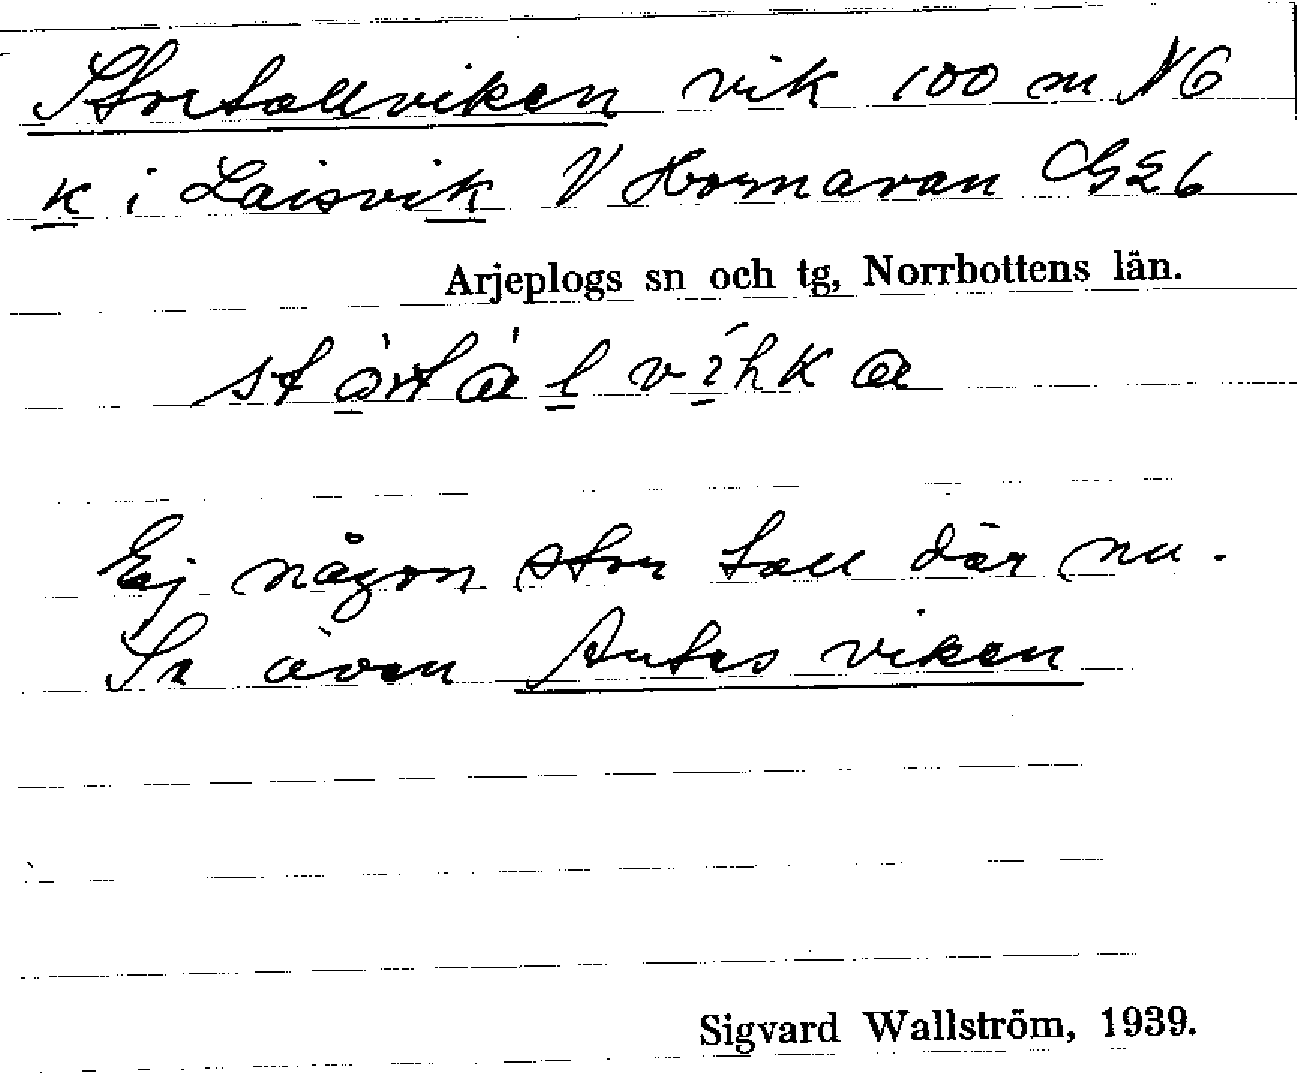 Stortallviken vik 100 m NO
k i Laisvik V Hornavan G26
Arjeplogs sn och tg, Norrbottens län.
Ej någon stor tall där nu.
Se även Antesviken
Sigvard Wallström, 1939.